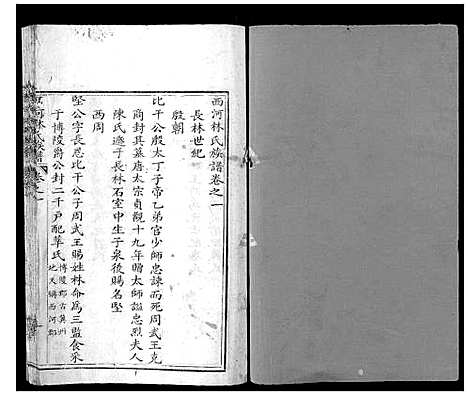 西河林氏族譜卷之一
長林世紀
殷朝
比干公殷太丁子帝乙弟官少師忠諫而死周武王克
商封其墓唐太宗貞觀十九年贈太師謚忠烈夫人
陳氏遯于長林石室中生子泉後賜名堅
西周
堅公字長思比干公子周武王賜姓林命為三監食采
于博陵爵公封二千戶配華氏
博陵郡古冀州
地又稱西河郡